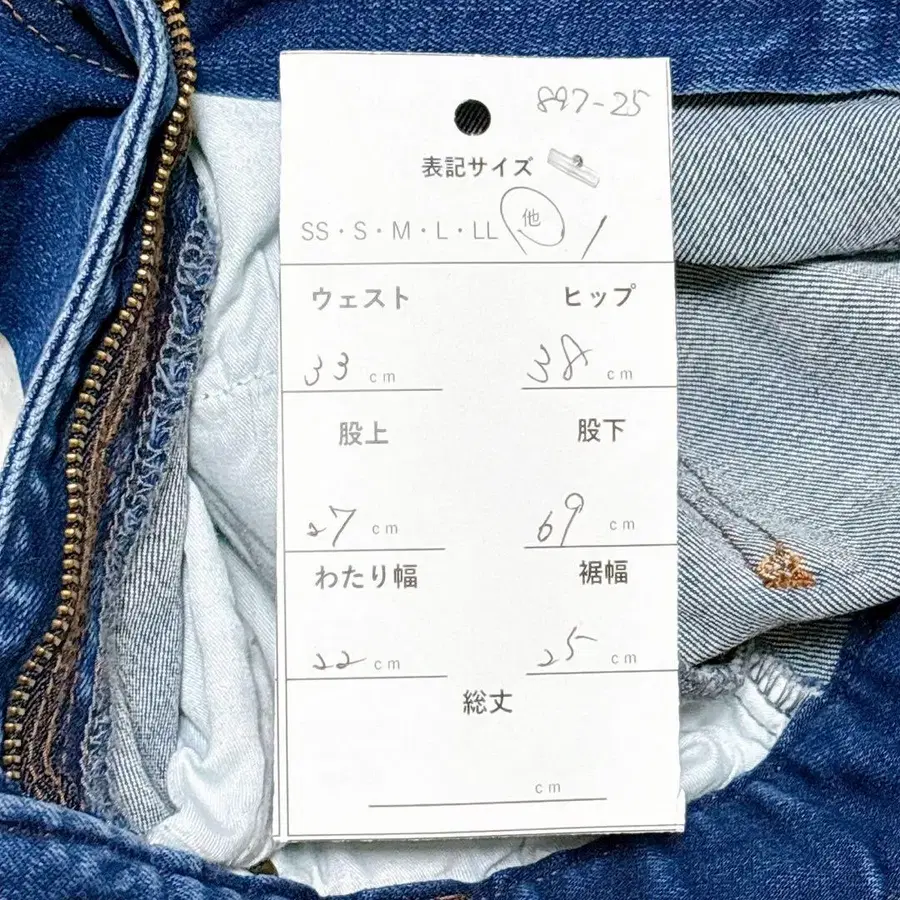 897-25
表記サイズ
SS・S・M・L・LL 他 1
ウェスト ヒップ
33 cm 38 cm
股上 股下
27 cm 69 cm
わたり幅 裾幅
22 cm 25 cm
総丈
cm